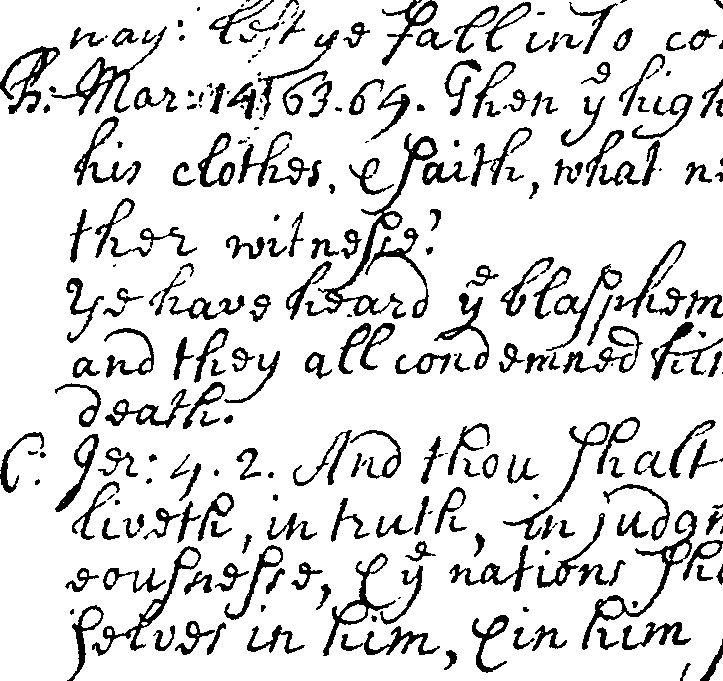 nay: lest ye fall into co
B: Mar: 14, 63. 64. Then yͤ high
his clothes, & saith, what ne
ther witnesse?
Ye have heard yͤ blasphem
and they all condemned him
death.
C: Jer: 4. 2. And thou shalt
liveth, in truth, in judgm
eousnesse, & yͤ nations sha
selves in him, & in him,